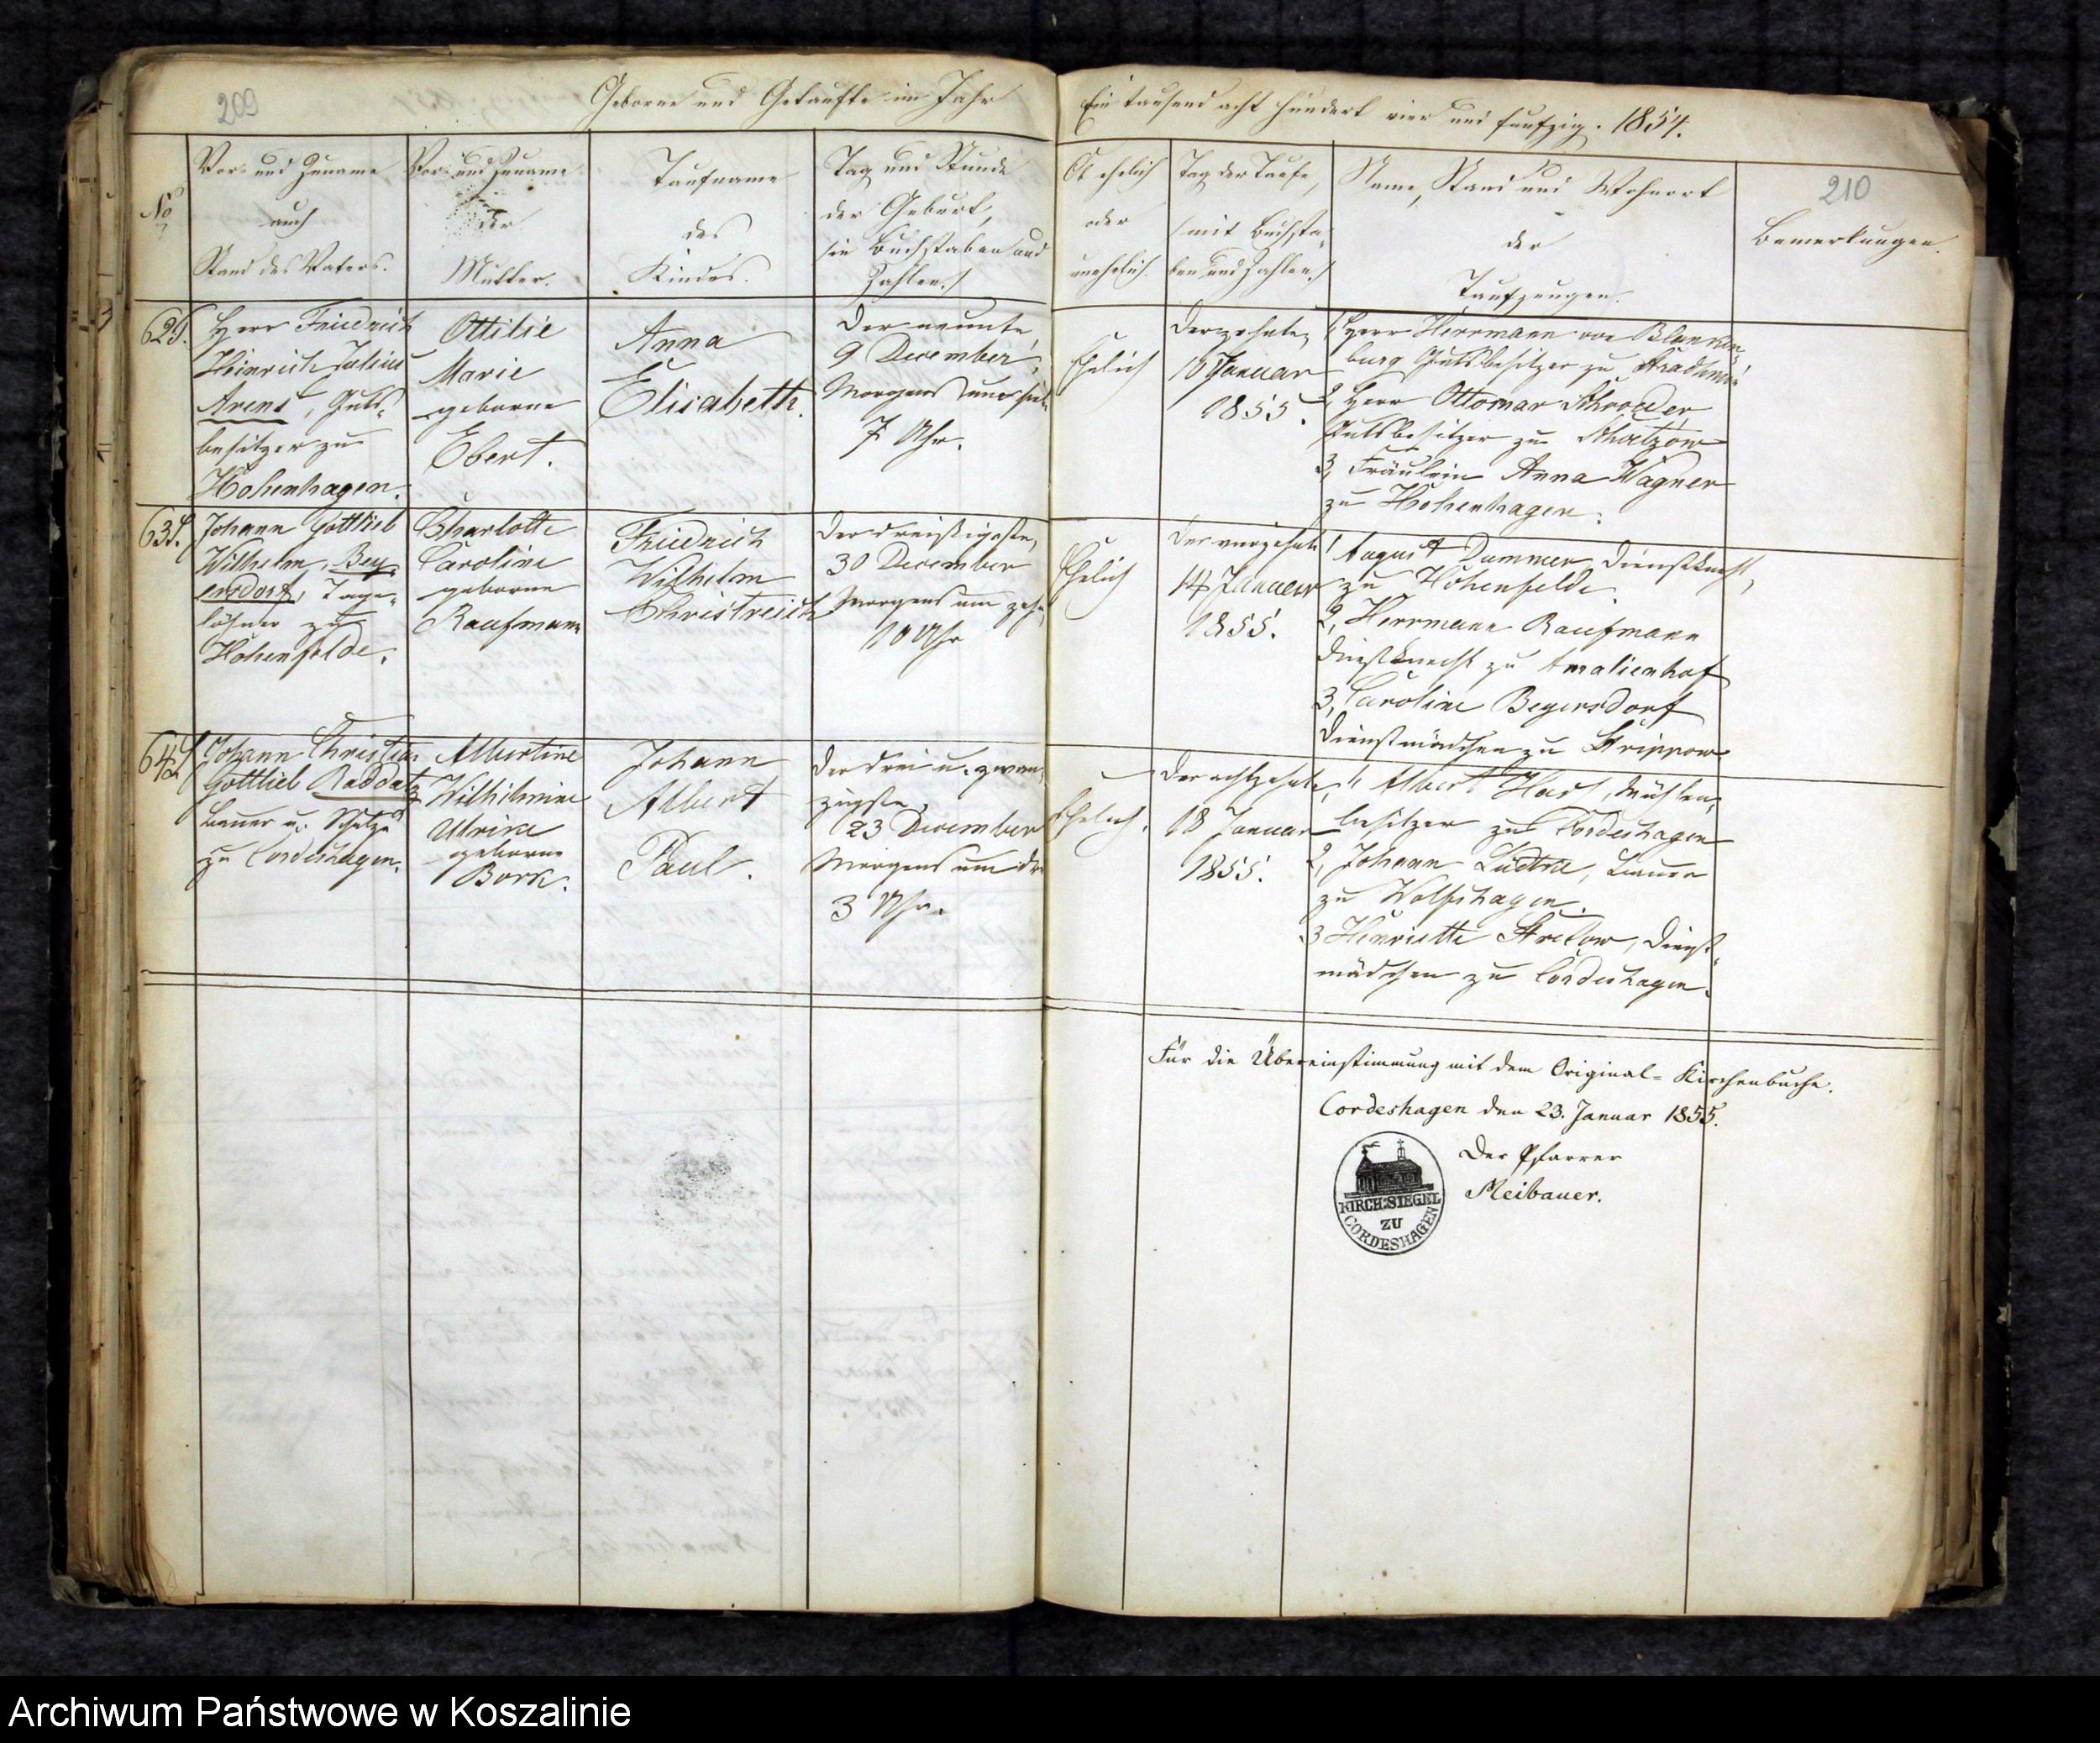 209
Geborne und Getaufte im Jahr
Ein tausend acht hundert vier und funfzig. 1854.
210
No
Vor- und Zuname
auch
Stand des Vaters.
Vor- und Zuname
der
Mutter.
Taufname
des
Kindes.
Tag und Stunde
der Geburt,
(in Buchstaben und
Zahlen.)
Ob ehelich
oder
unehelich.
Tag der Taufe,
(mit Buchsta-
ben und Zahlen.)
Name, Stand und Wohnort
der
Taufzeugen.
Bemerkungen.
62.
Herr Friedrich
Heinrich Julius
Arens, Guts-
besitzer zu
Hohenhagen.
Ottilie
Marie
geborne
Ebert.
Anna
Elisabeth.
Der neunte
9 December,
Morgens um sieb
7 Uhr.
Ehelich
Der zehnte,
10 Januar
1855.
1, Herr Herrmann von Blanken-
burg Gutsbesitzer zu
2, Herr Ottomar Schroeder
Gutsbesitzer zu
3, Fräulein Anna Wagner
zu Hohenhagen.
63.
Johann Gottlieb
Wilhelm Bey-
ersdorf, Tage-
löhner zu
Hohenfelde.
Charlotte
Caroline
geborne
Kaufmann
Friedrich
Wilhelm
Christreich
Der dreißigste,
30 December
Morgens um zehn
10 Uhr
Ehelich
Der vierzehnte
14 Januar
1855.
1, August Dummer, Dienstknecht,
zu Hohenfelde.
2, Herrmann Kaufmann
Dienstknecht zu Amalienhof
3, Caroline Beyersdorf
Dienstmädchen zu Strippow
64.
Johann Christian
Gottlieb Raddatz
Bauer u. Schulze
zu Cordeshagen.
Albertine
Wilhelmine
Ulrike
geborne
Bork.
Johann
Albert
Paul.
Der drei u. zwan-
zigste,
23 December
Morgens um dr
3 Uhr.
Ehelich.
Der achtzehnte,
18 Januar
1855.
1, Albert Hass, Mühlen-
besitzer zu Cordeshagen
2, Johann Lüdtke, Bauer
zu Wolfshagen.
3 Henriette Strelow, Dienst-
mädchen zu Cordeshagen.
Für die Übereinstimmung mit dem Original-Kirchenbuche.
Cordeshagen den 23. Januar 1855.
Der Pfarrer
Meibauer.
KIRCH.SIEGEL
ZU
CORDESHAGEN
Archiwum Państwowe w Koszalinie